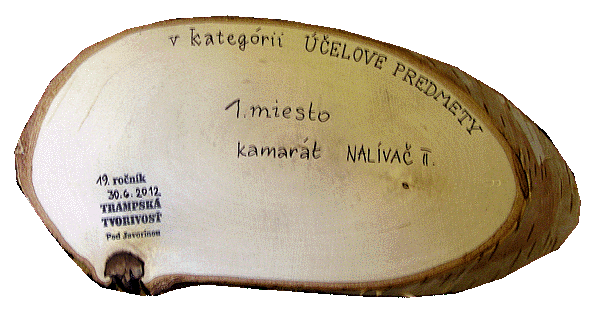 v kategórii ÚČELOVE PREDMETY
1. miesto
kamarát NALÍVAČ II.
19. ročník
30.6.2012
TRAMPSKÁ
TVORIVOSŤ
Pod Javorinou